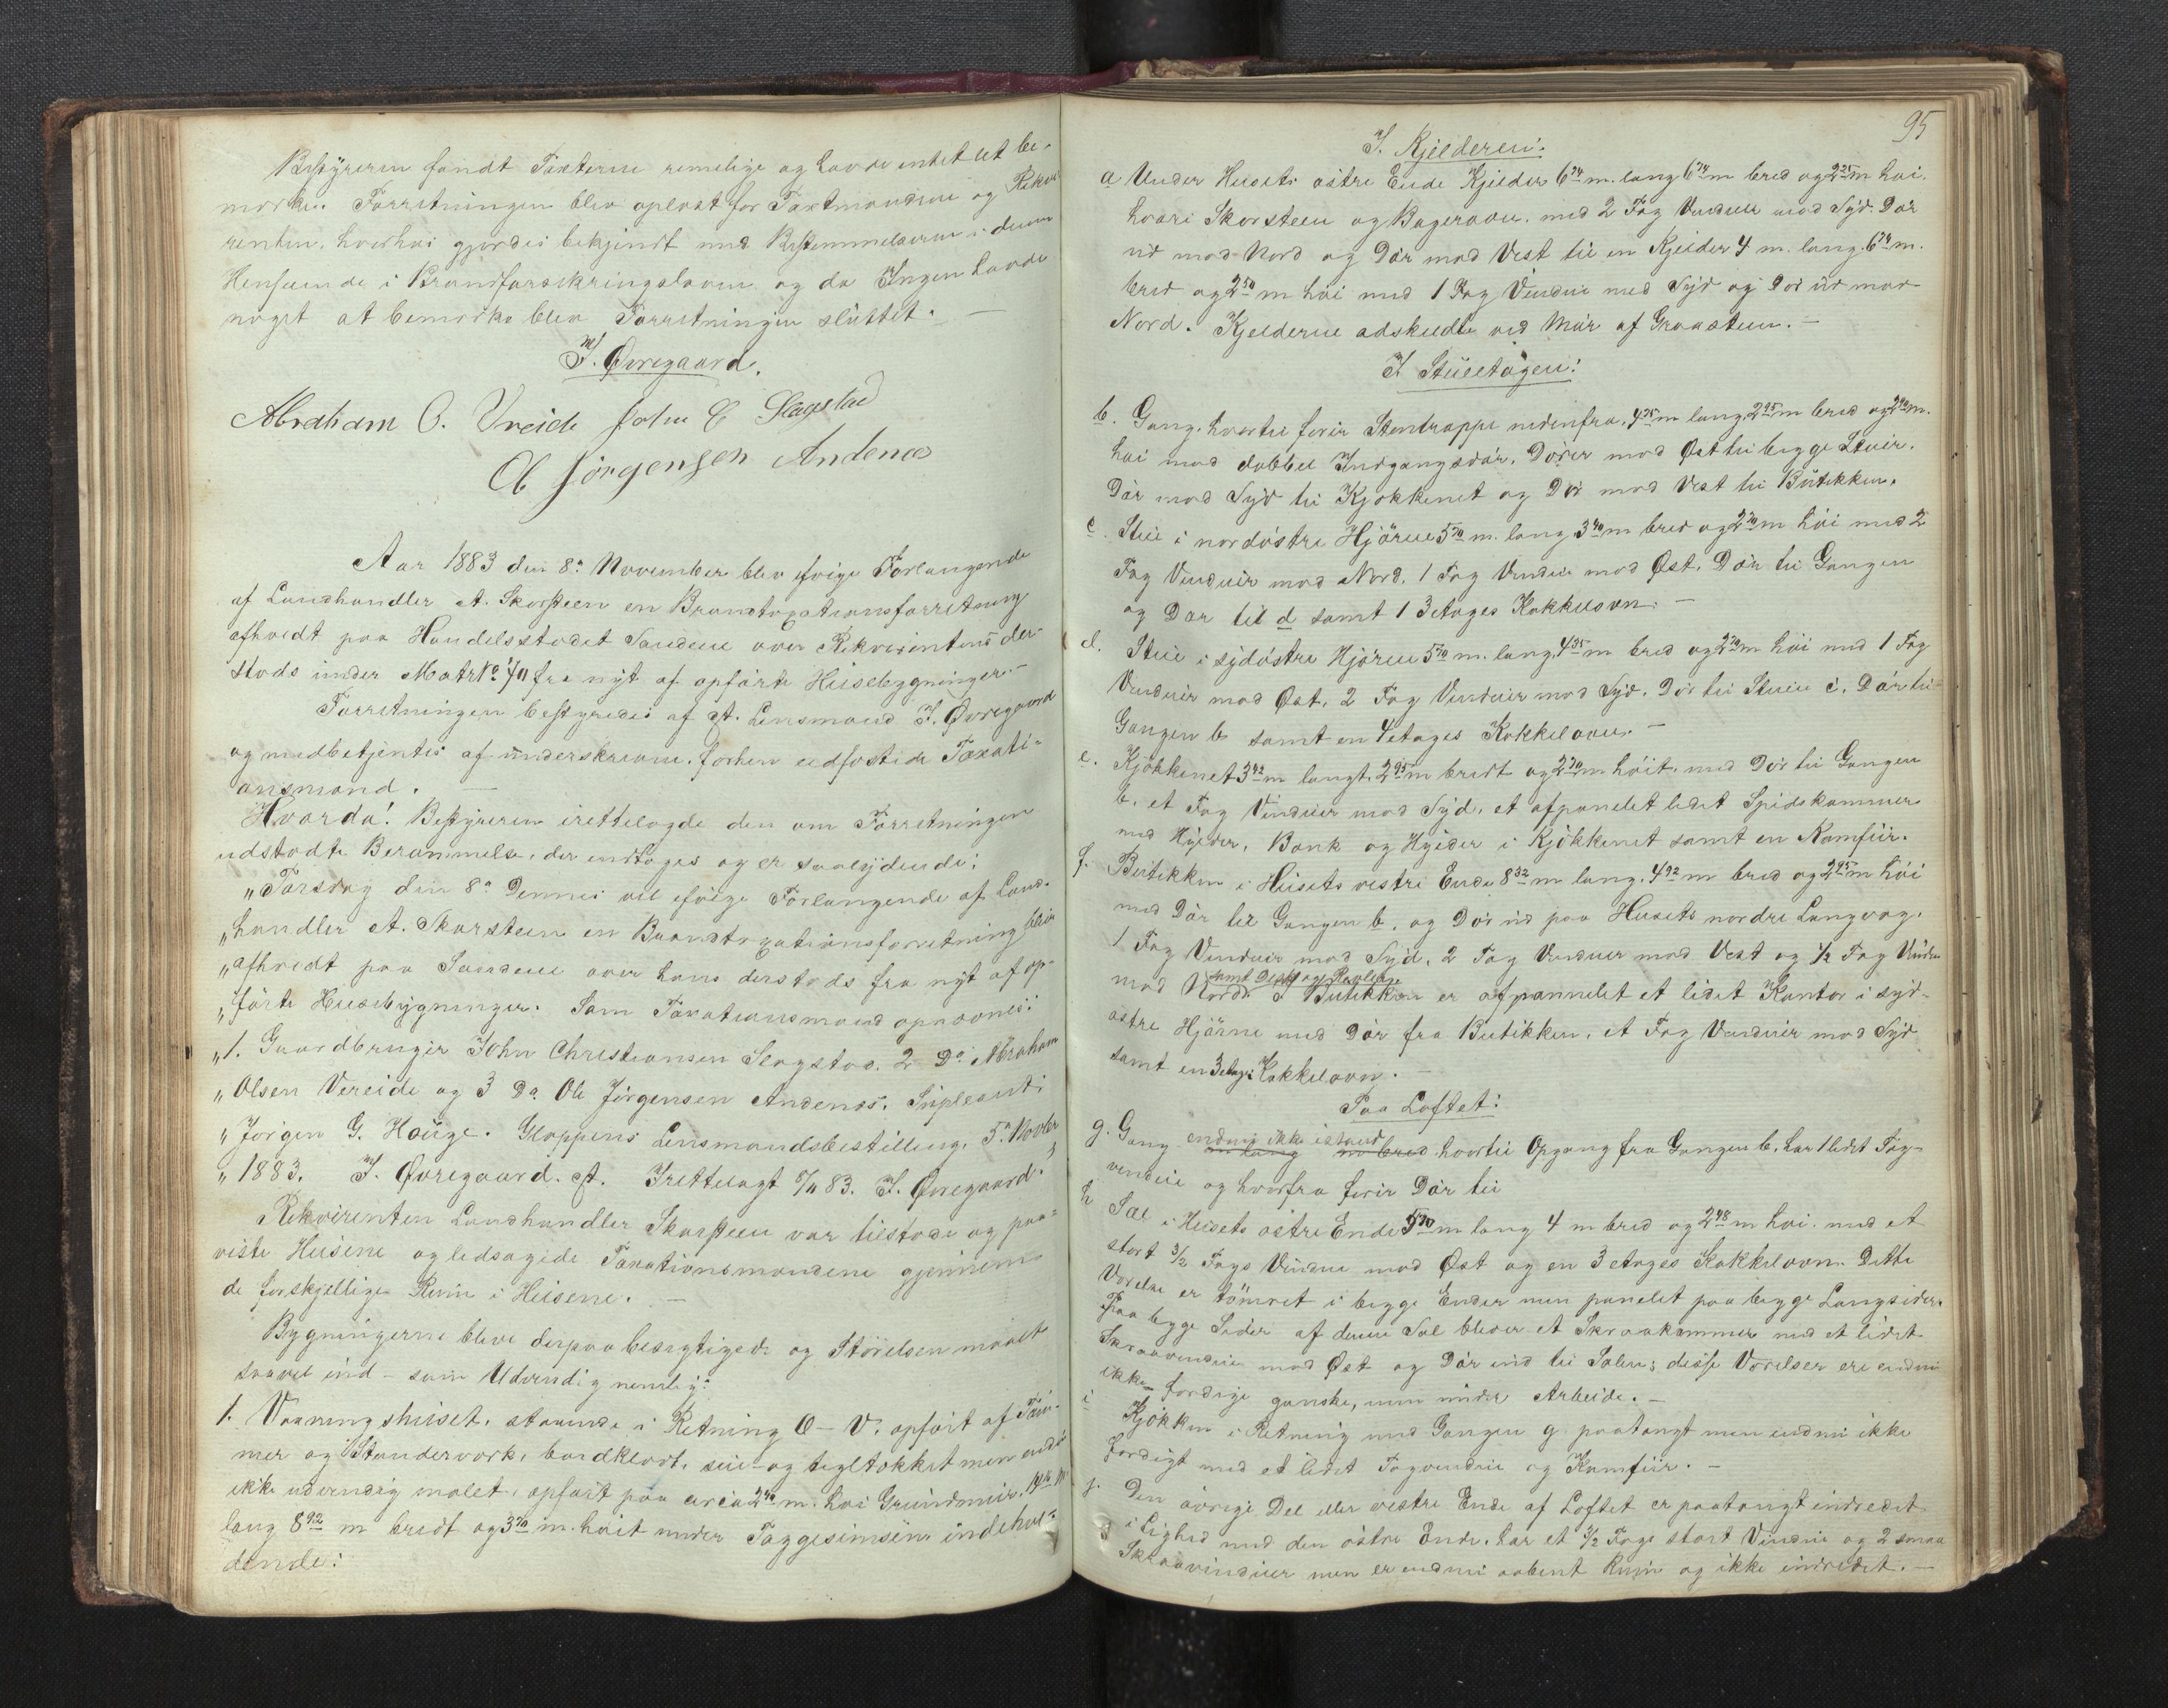 Bestyreren fandt Taxterne rimelige og havde intet at be-
mærke. Forretningen blev oplæst for Taxtmændene og Rekvi-
renten, hvorhos gjordes bekjendt med Bestemmelserne i denne
Henseende i Brandforsikringsloven og da Ingen havde
noget at bemærke blev Forretningen sluttet. —
I. Øvregaard.
Abraham O. Vreide John C Slagstad
Ole Jörgensen Andenæs
Aar 1883 den 8de November blev ifølge Forlangende
af Landhandler A. Skarsteen en Brandtaxationsforretning
afholdt paa Handelsstedet Sandene over Rekvirentens der-
steds under Matr No fra nyt af opførte Husebygninger. —
Forretningen bestyredes af Lensmand I. Øvregaard
og medbetjentes af underskrevne, forhen eedfæstede Taxati-
onsmænd. —
Hvorda! Bestyreren irettelagde den om Forretningen
udstedte Berammelse, der indtages og er saalydende:
„Torsdag den 8de Dennes vil ifølge Forlangende af Land-
„handler A. Skarsteen en Brandtaxationsforretning blive
„afholdt paa Sandene over hans dersteds fra nyt af op-
„førte Husebygninger. Som Taxationsmænd opnævnes:
„1. Gaardbruger John Christiansen Slagstad. 2 Do Abraham
„Olsen Vereide og 3 Do Ole Jörgensen Andenæs. Supleant:
„Jörgen G. Hauge. Gloppens Lensmandsbestilling, 5te Novbr
„1883. I. Øvregaard. Irettelagt 8/11 83. I. Øvregaard."
Rekvirenten Landhandler Skarsteen var tilstede og paa-
viste Husene og ledsagede Taxationsmændene gjennem
de forskjellige Rum i Husene. —
Bygningerne bleve derpaa besigtigede og Størrelsen maalt
saavel ind- som Udvendig nemlig:
1. Vaaningshuset, staaende i Retning O – V. opført af Tøm-
mer og Standerværk, bordklædt, sue- og tegltækket men endnu
ikke udvendig malet, opført paa circa 2 m. høi Grundmuur,
lang 8 92 m bredt og 3 70 m. høit under Taggesimsen indehol-
dende:
95
I. Kjelderen:
a Under Husets østre Ende Kjelder 6 74 m. lang 6 74 m bred og 2 25 m høi.
hvori Skorsteen og Bagerovn. med 2 Fag Vinduer mod Syd. Dør
ud mod Nord og Dør mod Vest til en Kjelder 4 m. lang. 6 74 m.
bred og 2 50 m høi med 1 Fag Vindue mod Syd og Dør ud mod
Nord. Kjelderne adskildte ved Mur af Graasteen. —
I Stueetagen:
b. Gang, hvortil fører Stentrappe nedenfra, 4 75 m lang, 2 95 m bred og 2 70 m.
høi med dobbel Indgangsdør, Dører mod Øst til begge Stuer.
Dør mod Syd til Kjøkkenet og Dør mod Vest til Butikken.
c. Stue i nordöstre Hjörne 5 70 m. lang 3 40 m bred og 2 70 m höi med 2
Fag Vinduer mod Nord, 1 Fag Vindue mod Øst, Dør til Gangen
og Dør til d samt 1 3etages Kakkelovn. —
d. Stue i sydöstre Hjörne 5 70 m. lang, 4 35 m bred og 2 70 m höi med 1 Fag
Vinduer mod Øst, 2 Fag Vinduer mod Syd. Dør til Stuen c. Dør til
Gangen b samt en 4etages Kakkelovn. —
e. Kjökkenet 3 42 m langt, 2 95 m bredt og 2 70 m höit, med Dør til Gangen
b, et Fag Vinduer mod Syd, et afpanelet lidet Spidskammer
med Hylder, Bænk og Hylder i Kjökkenet samt en Komfur.
f. Butikken i Husets vestre Ende 8 32 m lang, 4 92 m bred og 2 95 m höi
med Dør til Gangen b, og Dør ud paa Husets nordre Langvæg,
1 Fag Vinduer mod Syd, 2 Fag Vinduer mod Vest og 1/2 Fag Vindue
mod Nord samt Disk og Reoler. I Butikken er afpannelet et lidet Kontor i syd-
østre Hjörne med Dør fra Butikken, et Fag Vinduer mod Syd
samt en 3etages Kakkelovn. —
Paa Loftet:
g. Gang endnu ikke istand m lang m bred hvortil Opgang fra Gangen b, har 1 lidet Fag-
vindue og hvorfra fører Dør til
h Sal i Husets østre Ende 5 70 m lang 4 m bred og 2 48 m høi. med et
stort 3/2 Fags Vindue mod Øst og en 3 etages Kakkelovn. Dette
Værelse er tömret i begge Ender men panelet paa begge Langsider.
Paa begge Sider af denne Sal bliver et Skraakammer med et lidet
Skraavindue mod Øst og Dør ind til Salen; disse Værelser ere endnu
ikke færdige ganske, men under Arbeide. —
i Kjökken i Retning med Gangen g paatængt men endnu ikke
færdigt med et lidet Fagvindue og Komfur. —
j. Den øvrige Del eller vestre Ende af Loftet er paatængt indredet
i Lighed med den østre Ende, har et 3/2 Fags stort Vindue og 2 smaa
Skraavinduer men er endnu aabent Rum og ikke indredet. —